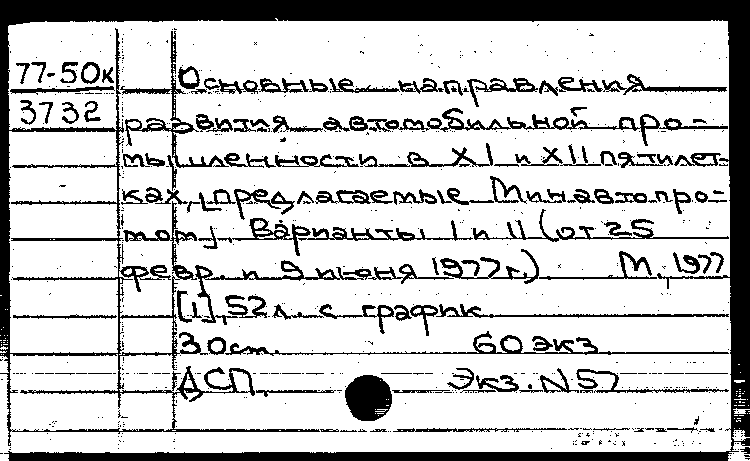 77-50к Основные направления
3732 развития автомобильной про-
мышленности в XI и XII пятилет-
ках, [предлагаемые Минавтопро-
мом]. Варианты I и II (от 25
февр. и 9 июня 1977 г.). М., 1977
[1], 52 л. с график.
30 см. 60 экз.
ДСП. Экз. N 57